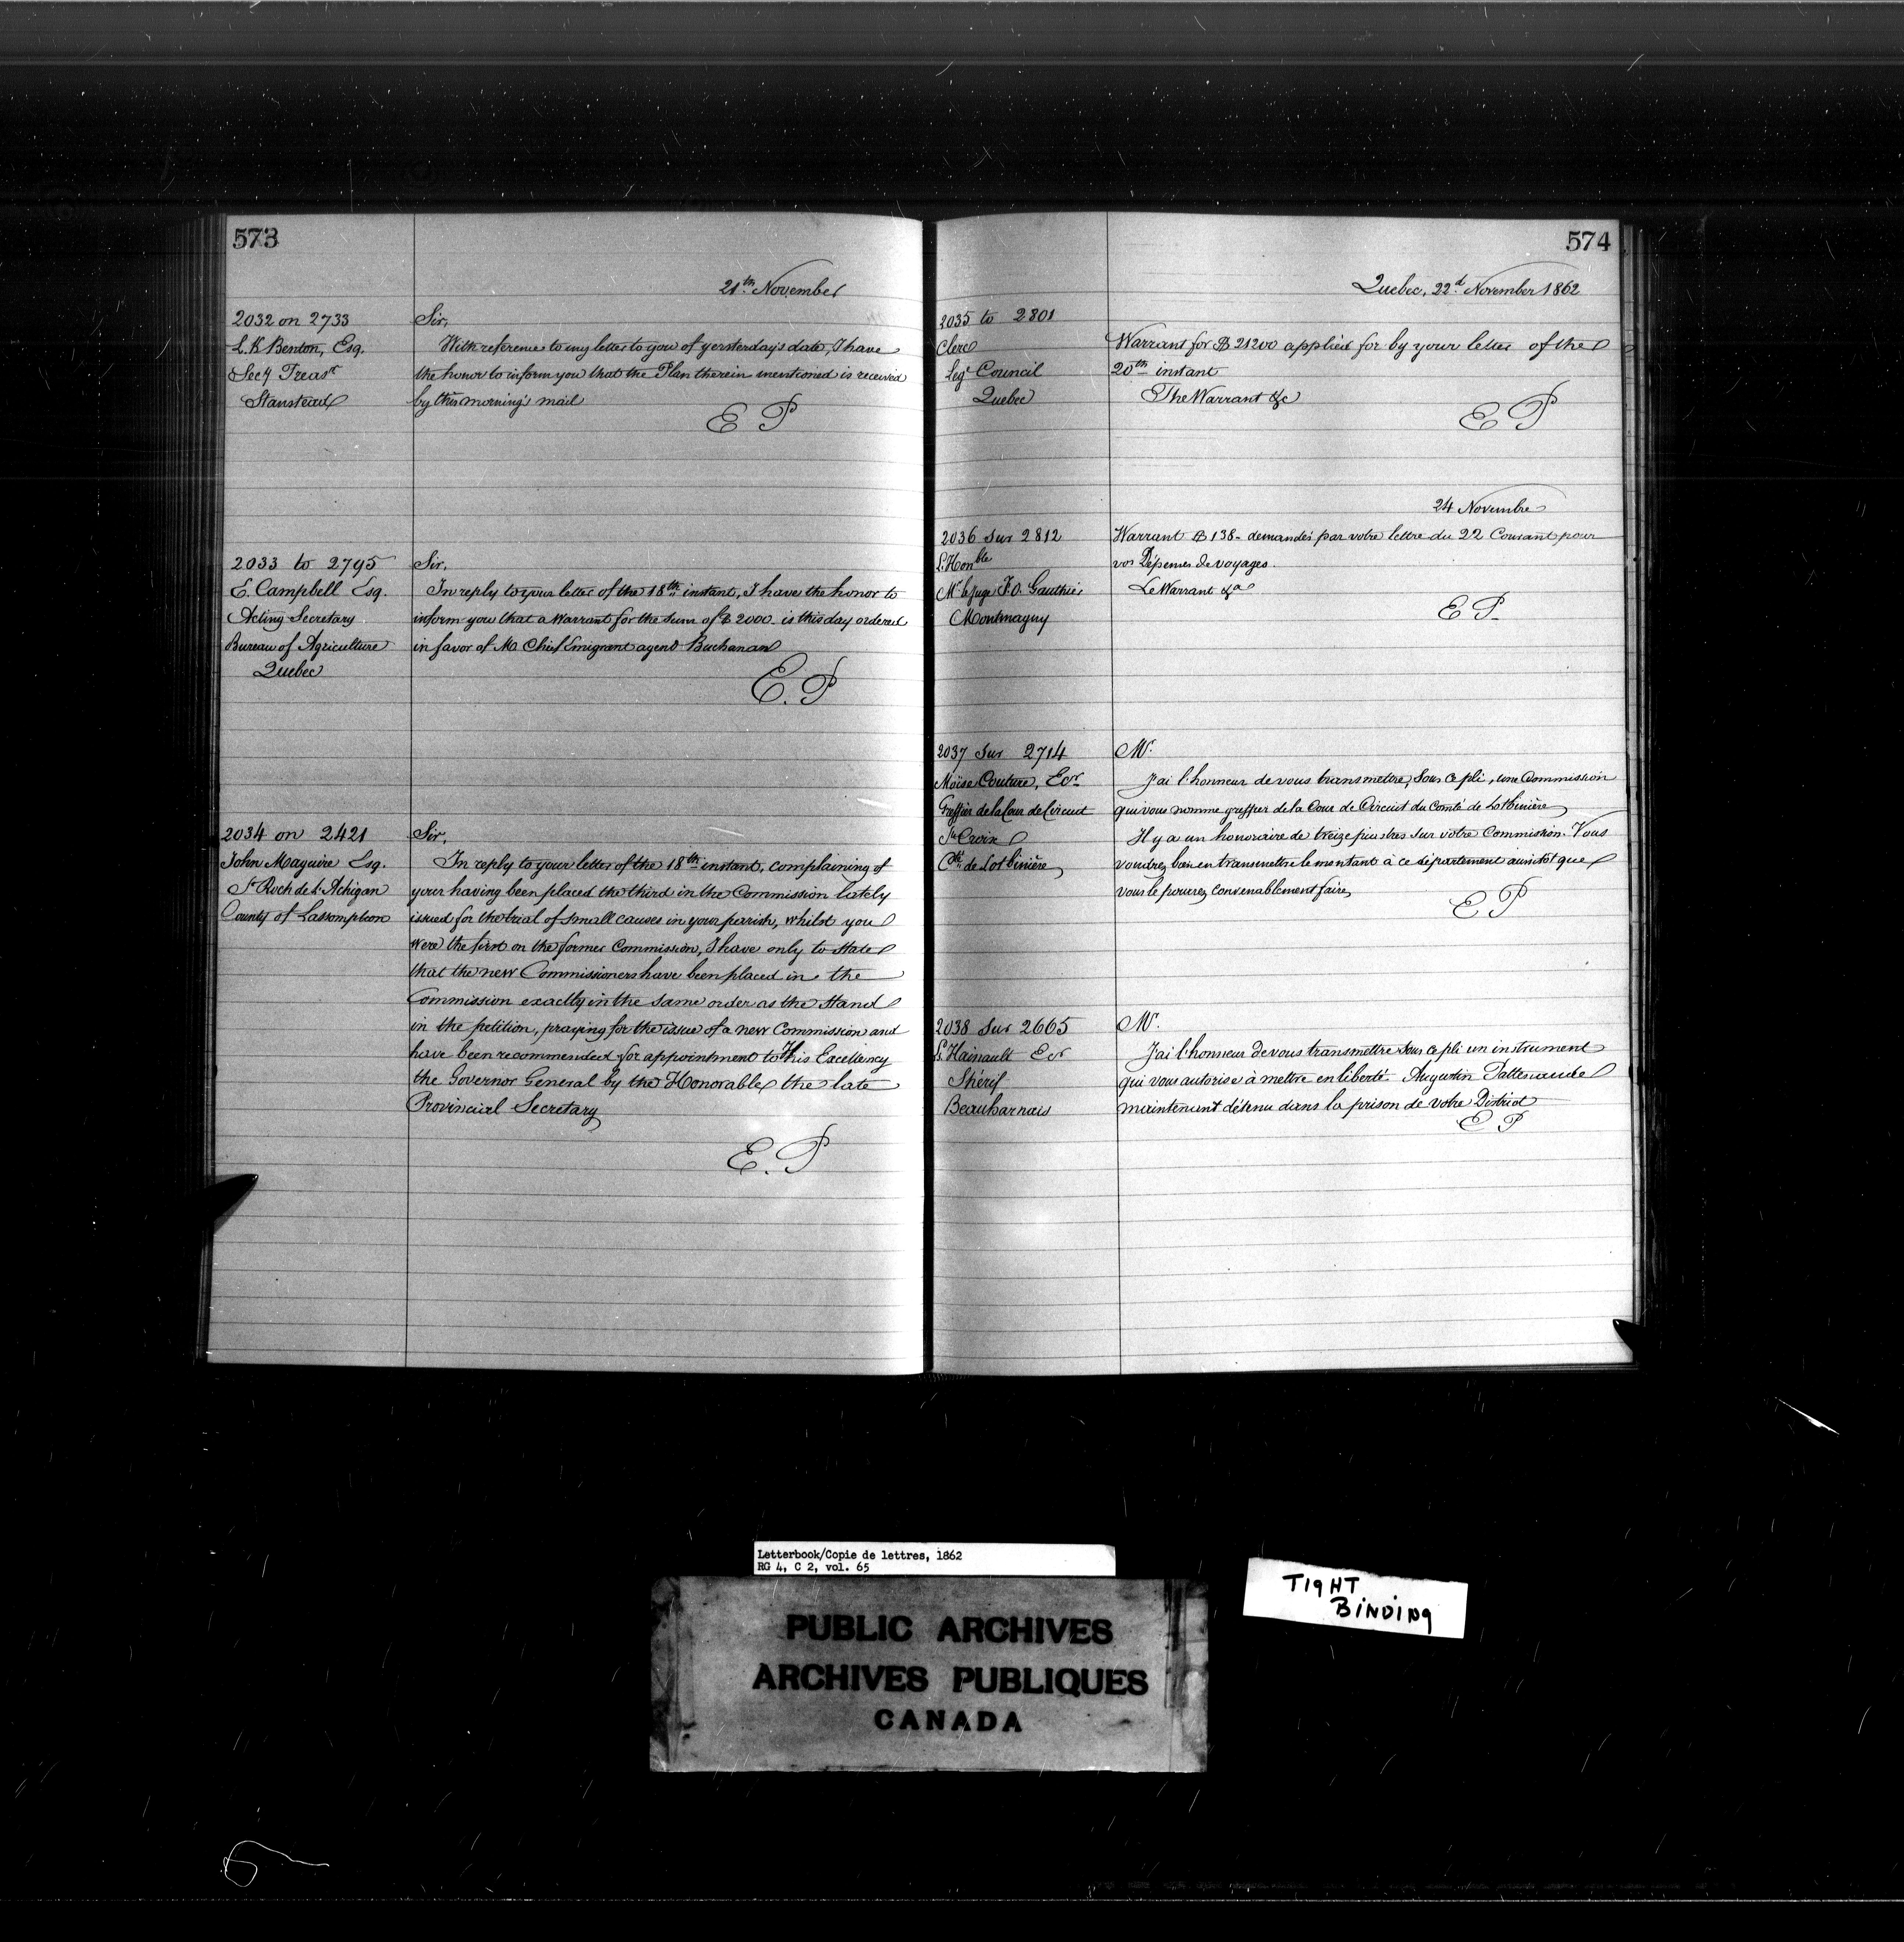 573
21th November
2032 on 2733
L. K Benton, Esq.
Secy Treasr
Stanstead
Sir,
With reference to my letter to you of yersterday's date, I have
the honor to inform you that the Plan therein mentioned is received
by this morning's mail
E P
2033 to 2795
E. Campbell Esq.
Acting Secretary
Bureau of Agriculture
Quebec
Sir,
In reply to your letter of the 18th instant, I have the honor to
inform you that a Warrant for the Sum of $ 2000- is this day ordered
in favor of Mr Chief Emigrant agent Buchanan
E. P
2034 on 2421
John Maguire Esq.
St Roch de L'Achigan
County of Lassomption
Sir,
In reply to your letter of the 18th instant, complaining of
your having been placed the third in the Commission lately
issued for the trial of small causes in your parish, whilst you
were the first on the former Commission, I have only to State
that the new Commissioners have been placed in the
Commission exactly in the same order as the Stand
in the petition, praying for the issue of a new Commission and
have been recommended for appointment to His Excellency
the Governor General by the Honorable the late
Provincial Secretary
E. P
574
Quebec, 22d November 1862
2035 to 2801
Clerc
Legt Council
Quebec
Warrant for $ 21200 applied for by your letter of the
20th instant
The Warrant &c
E P
24 Novembre
2036 Sur 2812
L'Honble
Mr le juge F. O. Gauthier
Montmagny
Warrant $ 138- demandés par votre lettre du 22 Courant pour
vos Dépenses de voyages.
Le Warrant &a
E P-
2037 Sur 2714
Moïse Couture, Ecr
Greffier de la Cour de Circuit
Ste Croix
Cté de Lotbinière
Mr.
J'ai l'honneur de vous transmettre, Sous ce pli, une Commission
qui vous nomme greffier de la Cour de Circuit du Comté de Lotbinière
Il y a un honoraire de treize piastres sur votre Commission. Vous
voudrez bien en transmettre le montant à ce département aussitot que
vous le pourrez convenablement faire,
E P
2038 Sur 2665
L. Hainault Ecr
Shérif
Beauharnais
Mr.
J'ai l'honneur de vous transmettre sous ce pli un instrument
qui vous autorise à mettre en liberté. Augustin Pattenaude
maintenant détenu dans la prison de votre District
E P
Letterbook/Copie de lettres, 1862
RG 4, C 2, vol. 65
TIGHT
BINDING
PUBLIC ARCHIVES
ARCHIVES PUBLIQUES
CANADA